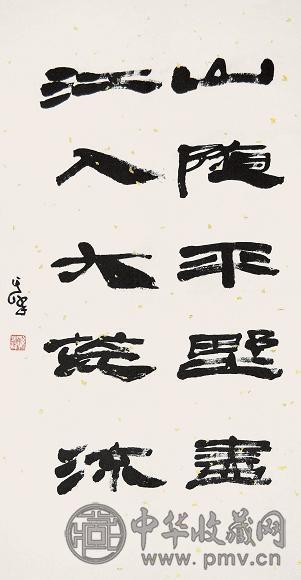 山随平野盡
江入大荒流
中华收藏网
www.pmv.cn